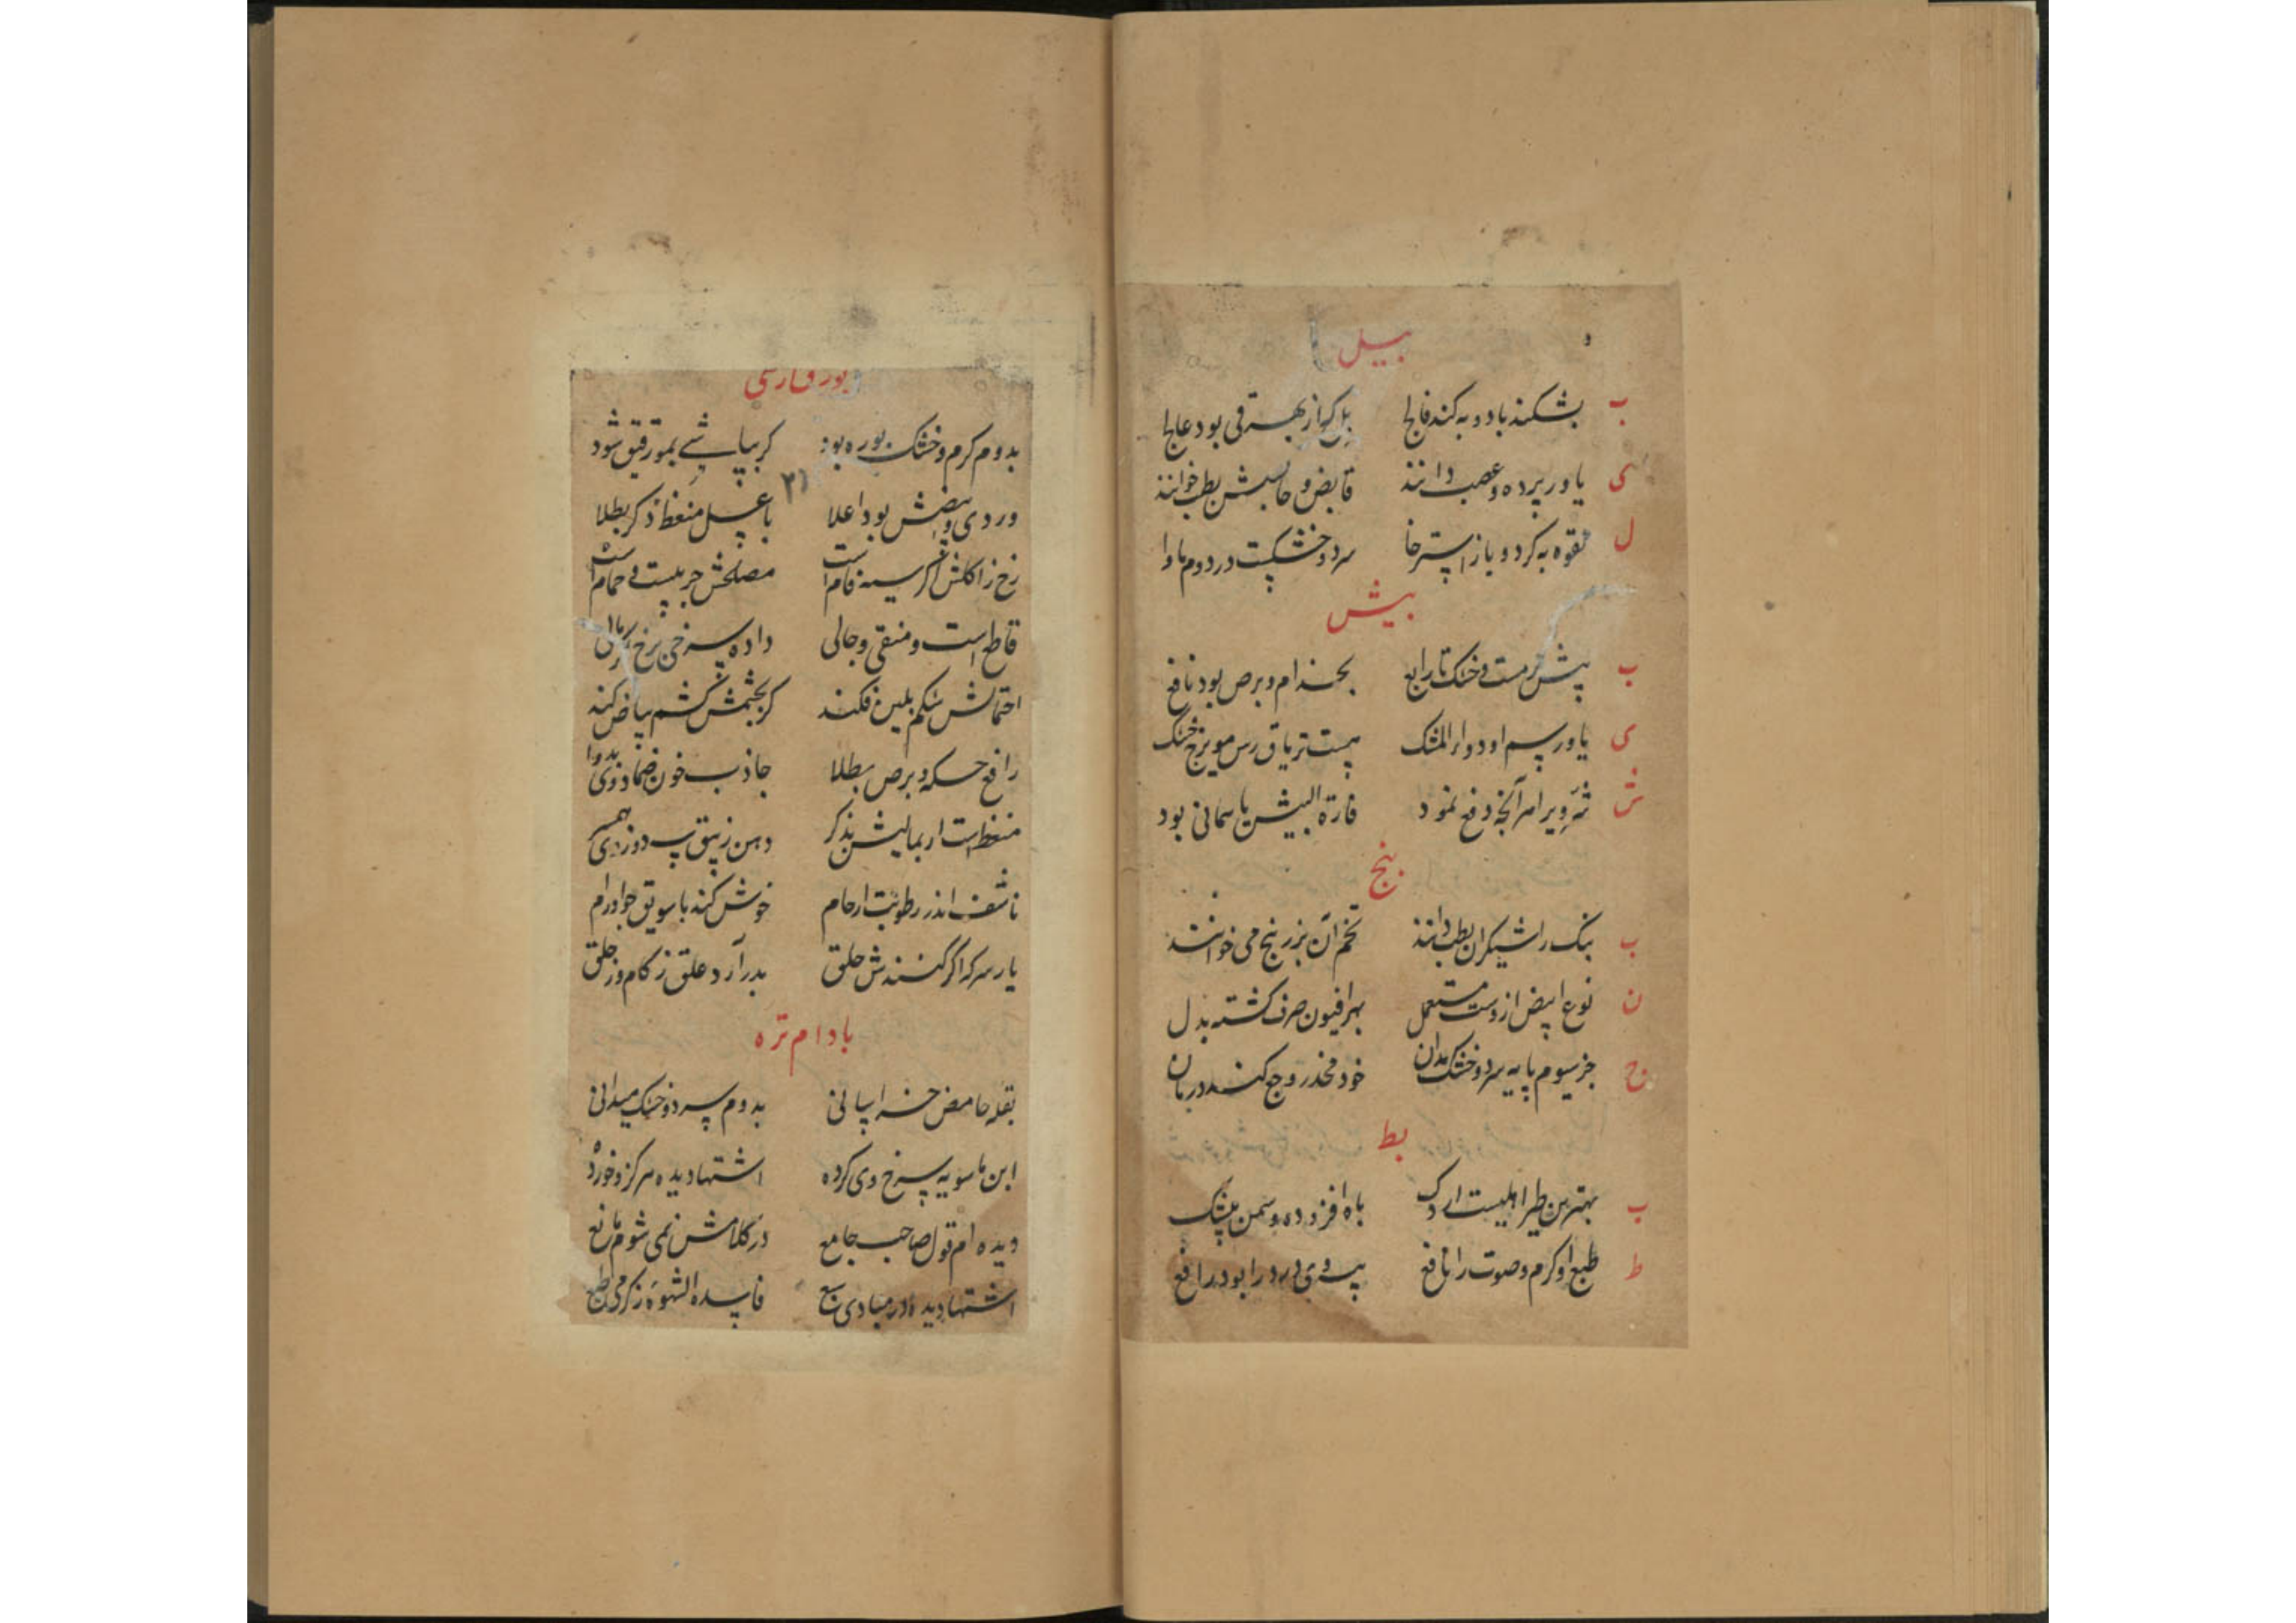 بیل
ب بشکند باد و به کند فالج بل کز از بهر قی بود عالج
ی یاور پرده و عصب دانند قابض و حابسش بطب خوانند
ل لقوه به کرد و باز استرخا سرد و خشکست در دوم ماوا
بیش
ب بیش گرمست و خشک تا رابع بجذام و برص بود نافع
ی یاورسم او دواء المشک هست تریاق رس مویزج خشک
ش فارة البیش یا سمانی بود
بنج
ب بنک را شیکران بطب دانند تخم آن بزر بنج می خوانند
ن نوع ابیض ازوست مستعمل بهر افیون صرف کشته بدل
ج جز سیوم پایه سرد و خشک مدان خود مخدر وجع کند درمان
بط
ب بهترین طیر اهلیست اردک باه افزوده و سمن بیشک
ط طبع او کرم و صوت را نافع پیه وی درد را بود رافع
بوره فارسی
بدوم کرم و خشک بوره بود کر بپاشی بمو رقیق شود
۲۱
ور دی و بیضش بود اعلا با عسل منعظ ذکر بطلا
رخ ز اکلش اکر سیه فام است مصلحش چربیست و حمام است
قاطع است و منقی و جالی داده سرخی برخ
احتمالش شکم بلین فکند کر بچشمش کشم بیاض کند
رافع حکه و برص بطلا جاذب خون ضماد وی بدوا
منعظ است ار بمالیش بذکر دهن زنبق
ناشف اندر رطوبت ارحام خوش کند با سویق جو اورام
یار سرکه اکر کنندش حلق بدر آرد علق ز کام و ز حلق
بادام تره
بقله حامض خراسانی بدوم سرد و خشک میدانی
ابن ماسویه شرح وی کرده اشتها دیده هر کزو خورده
دیده ام قول صاحب جامع در کلامش نمی شوم مانع
اشتها دیده در مبادی فاسد الشهوه ز کرمی طبع